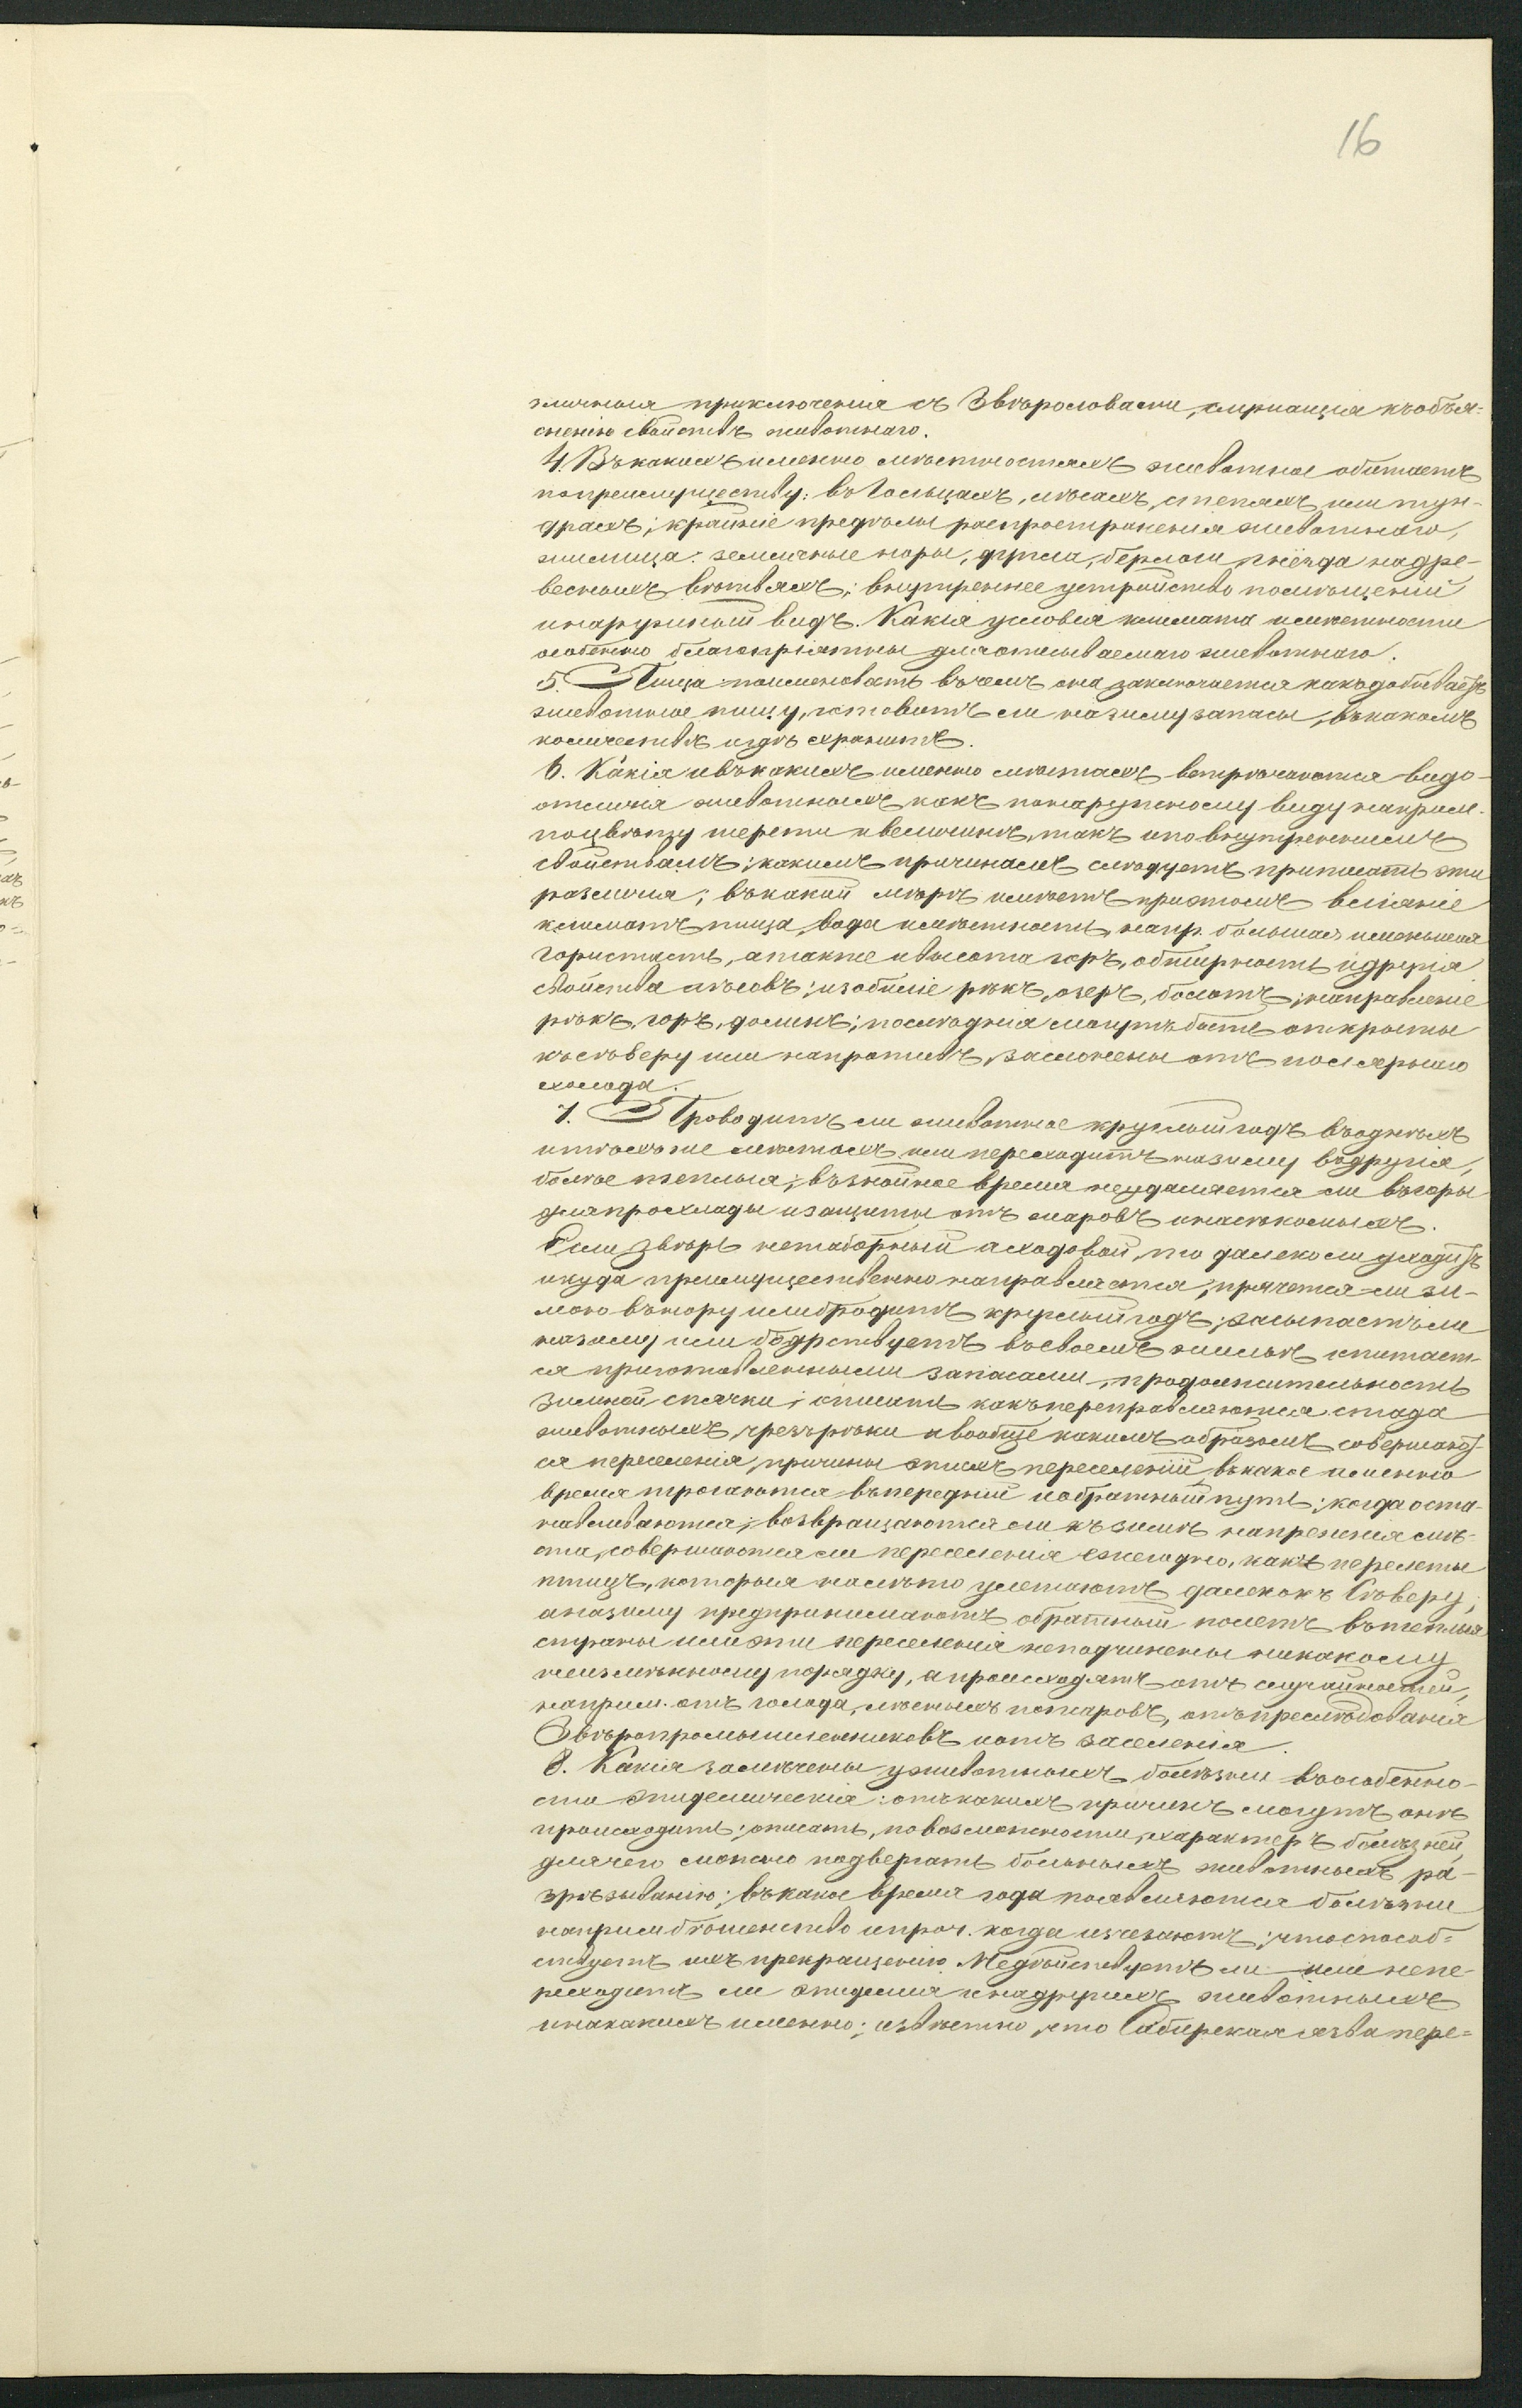 16
зличныя приключенія съ Звѣроловами, служащія къ объя-
сненію свойствъ животнаго.
4. Въ какихъ именно мѣстностяхъ животное обитаетъ
по преимуществу: въ гольцахъ, лѣсахъ, степяхъ, или тун-
драхъ; крайніе предѣлы распространенія животнаго,
жилища: земляныя норы, дупла, берлоги, гнёзда на дре-
весныхъ вѣтвяхъ; внутреннее устройство помѣщеній
и наружный видъ. Какія условія климата и мѣстности
особенно благопріятны для описываемаго животнаго.
5. Пища: поименовать въ чемъ она заключается какъ добываетъ
животное пищу, готовитъ ли на зиму запасы, въ какомъ
количествѣ и гдѣ хранитъ.
6. Какія и въ какихъ именно мѣстахъ встрѣчаются видо-
отличія животныхъ какъ по наружному виду наприм.
по цвѣту шерсти и величинѣ, такъ и по внутреннимъ
свойствамъ; какимъ причинамъ слѣдуетъ приписать эти
различія; въ какой мѣрѣ имѣетъ при этомъ вліяніе
климатъ пища, вода и мѣстность, напр. большая и меньшая
гористость, а также и высота горъ, обширность и другія
свойства лѣсовъ; изобиліе рѣкъ, озеръ, болотъ; направленіе
рѣкъ, горъ, долинъ; послѣднія могутъ быть открыты
къ сѣверу или напротивъ, заслонены отъ полярнаго
холода.
7. Проводитъ ли животное круглый годъ въ однѣхъ
и тѣхъ же мѣстахъ или переходитъ на зиму въ другія,
болѣе теплыя; въ знойное время не удаляется ли въ горы
для прохлады и защиты отъ жаровъ и насѣкомыхъ.
Если звѣрь не таборный а ходовой, то далеко ли уходитъ
и куда преимущественно направляется; прячется-ли зи-
мою въ нору или бродитъ круглый годъ; засыпаетъ ли
на зиму или бодрствуетъ въ своемъ жильѣ и питает-
ся приготовленными запасами, продолжительность
зимной спячки; описать какъ переправляются стада
животныхъ, чрезъ рѣки и вообще какимъ образомъ совершают-
ся переселенія, причины этихъ переселеній, въ какое именно
время трогаются въ передній и обратный путь; когда оста-
навливаются; возвращаются ли къ зимѣ на прежнія мѣ-
ста, совершаются ли переселенія ежегодно, какъ перелеты
птицъ, которыя на лѣто улетаютъ далеко къ Сѣверу,
а на зиму предпринимаютъ обратный полетъ въ теплыя
страны или эти переселенія не подчинены никакому
неизмѣнному порядку, а происходятъ отъ случайностей,
наприм. отъ голода, лѣсныхъ пожаровъ, отъ преслѣдованія
Звѣропромышленниковъ и отъ заселенія.
8. Какія замѣчены у животныхъ болѣзни въ особенно-
сти эпидемическія: отъ какихъ причинъ могутъ онѣ
происходить; описать, по возможности, характеръ болѣзней,
для чего можно подвергать больныхъ животныхъ ра-
зрѣзыванію; въ какое время года появляются болѣзни
наприм бѣшенство и проч. когда изчезаютъ; что способ-
ствуетъ ихъ прекращенію. Не дѣйствуетъ ли или не пе-
реходитъ ли эпидемія и на другихъ животныхъ
и на какихъ именно; извѣстно, что Сибирская язва пере-